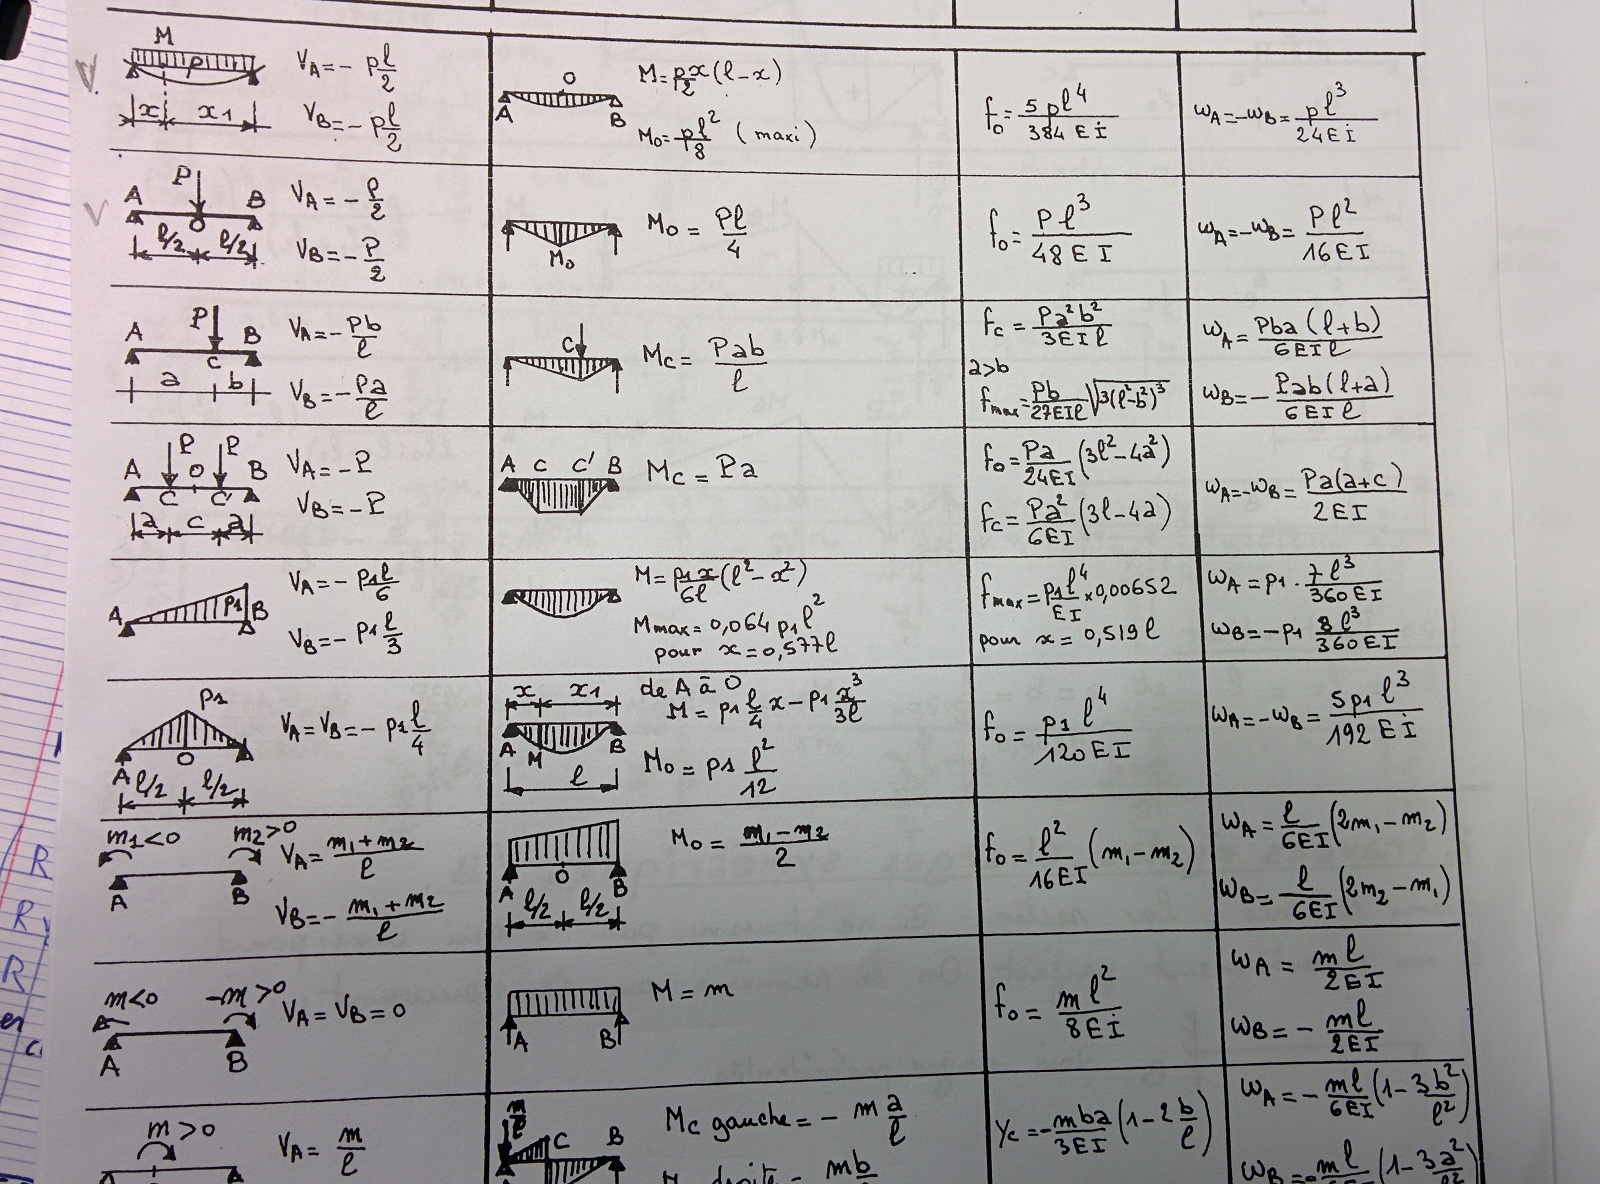 M
p
x x1
VA = - pl/2
VB = - pl/2
O
A B
M = px/2 (l-x)
Mo = pl²/8 (maxi)
fo = 5pl⁴/384EI
ωA = -ωB = pl³/24EI
P
A B
O
l/2 l/2
VA = - P/2
VB = - P/2
Mo
Mo = Pl/4
fo = Pl³/48EI
ωA = -ωB = Pl²/16EI
P
A B
C
a b
VA = - Pb/l
VB = - Pa/l
C
Mc = Pab/l
fc = Pa²b²/3EIl
a>b
fmax = Pb/27EIl √3(l²-b²)³
ωA = Pba(l+b)/6EIl
ωB = - Pab(l+a)/6EIl
P P
A O B
C C'
a c a
VA = - P
VB = - P
A C C' B
Mc = Pa
fo = Pa/24EI (3l²-4a²)
fc = Pa²/6EI (3l-4a)
ωA = -ωB = Pa(a+c)/2EI
A p1 B
VA = - p1l/6
VB = - p1 l/3
M = p1x/6l (l²-x²)
Mmax = 0,064 p1l²
pour x = 0,577l
fmax = p1l⁴/EI × 0,00652
pour x = 0,519l
ωA = p1 · 7l³/360EI
ωB = - p1 8l³/360EI
p1
A O
l/2 l/2
VA = VB = - p1 l/4
x x1
A M B
l
de A à O
M = p1 l/4 x - p1 x³/3l
Mo = p1 l²/12
fo = p1 l⁴/120EI
ωA = -ωB = 5p1 l³/192EI
m1<0 m2>0
A B
VA = m1+m2/l
VB = - m1+m2/l
A O B
l/2 l/2
Mo = m1-m2/2
fo = l²/16EI (m1-m2)
ωA = l/6EI (2m1-m2)
ωB = l/6EI (2m2-m1)
m<0 -m>0
A B
VA = VB = 0
A B
M = m
fo = ml²/8EI
ωA = ml/2EI
ωB = - ml/2EI
m>0
VA = m/l
C B
Mc gauche = - m a/l
droite = mb
yc = - mba/3EI (1-2b/l)
ωA = - ml/6EI (1-3b²/l²)
R
R
R